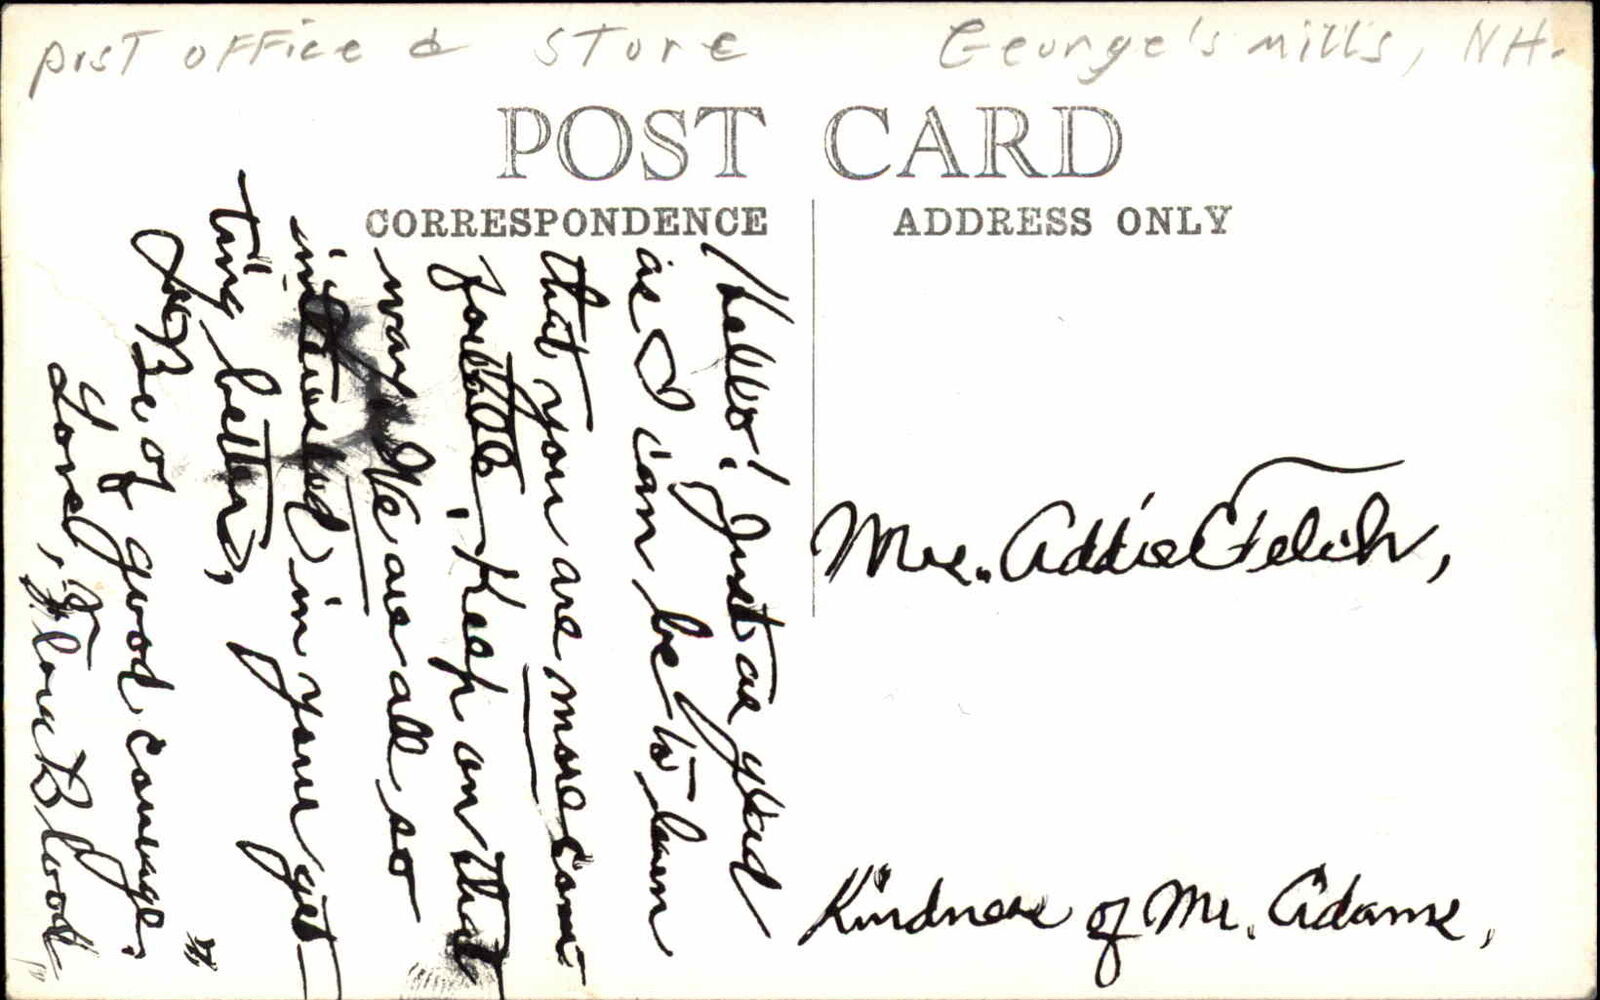 Post office & Store George's mills, NH.
POST CARD
CORRESPONDENCE
ADDRESS ONLY
Hello! Just as glad
as I can be to learn
that you are more com-
fortable, Keep on that
way. We are all so
interested in your get-
ting better,
"Be of good courage."
Love, Flora Blood
Mrs. Addie Felch,
Kindness of Mr. Adams,